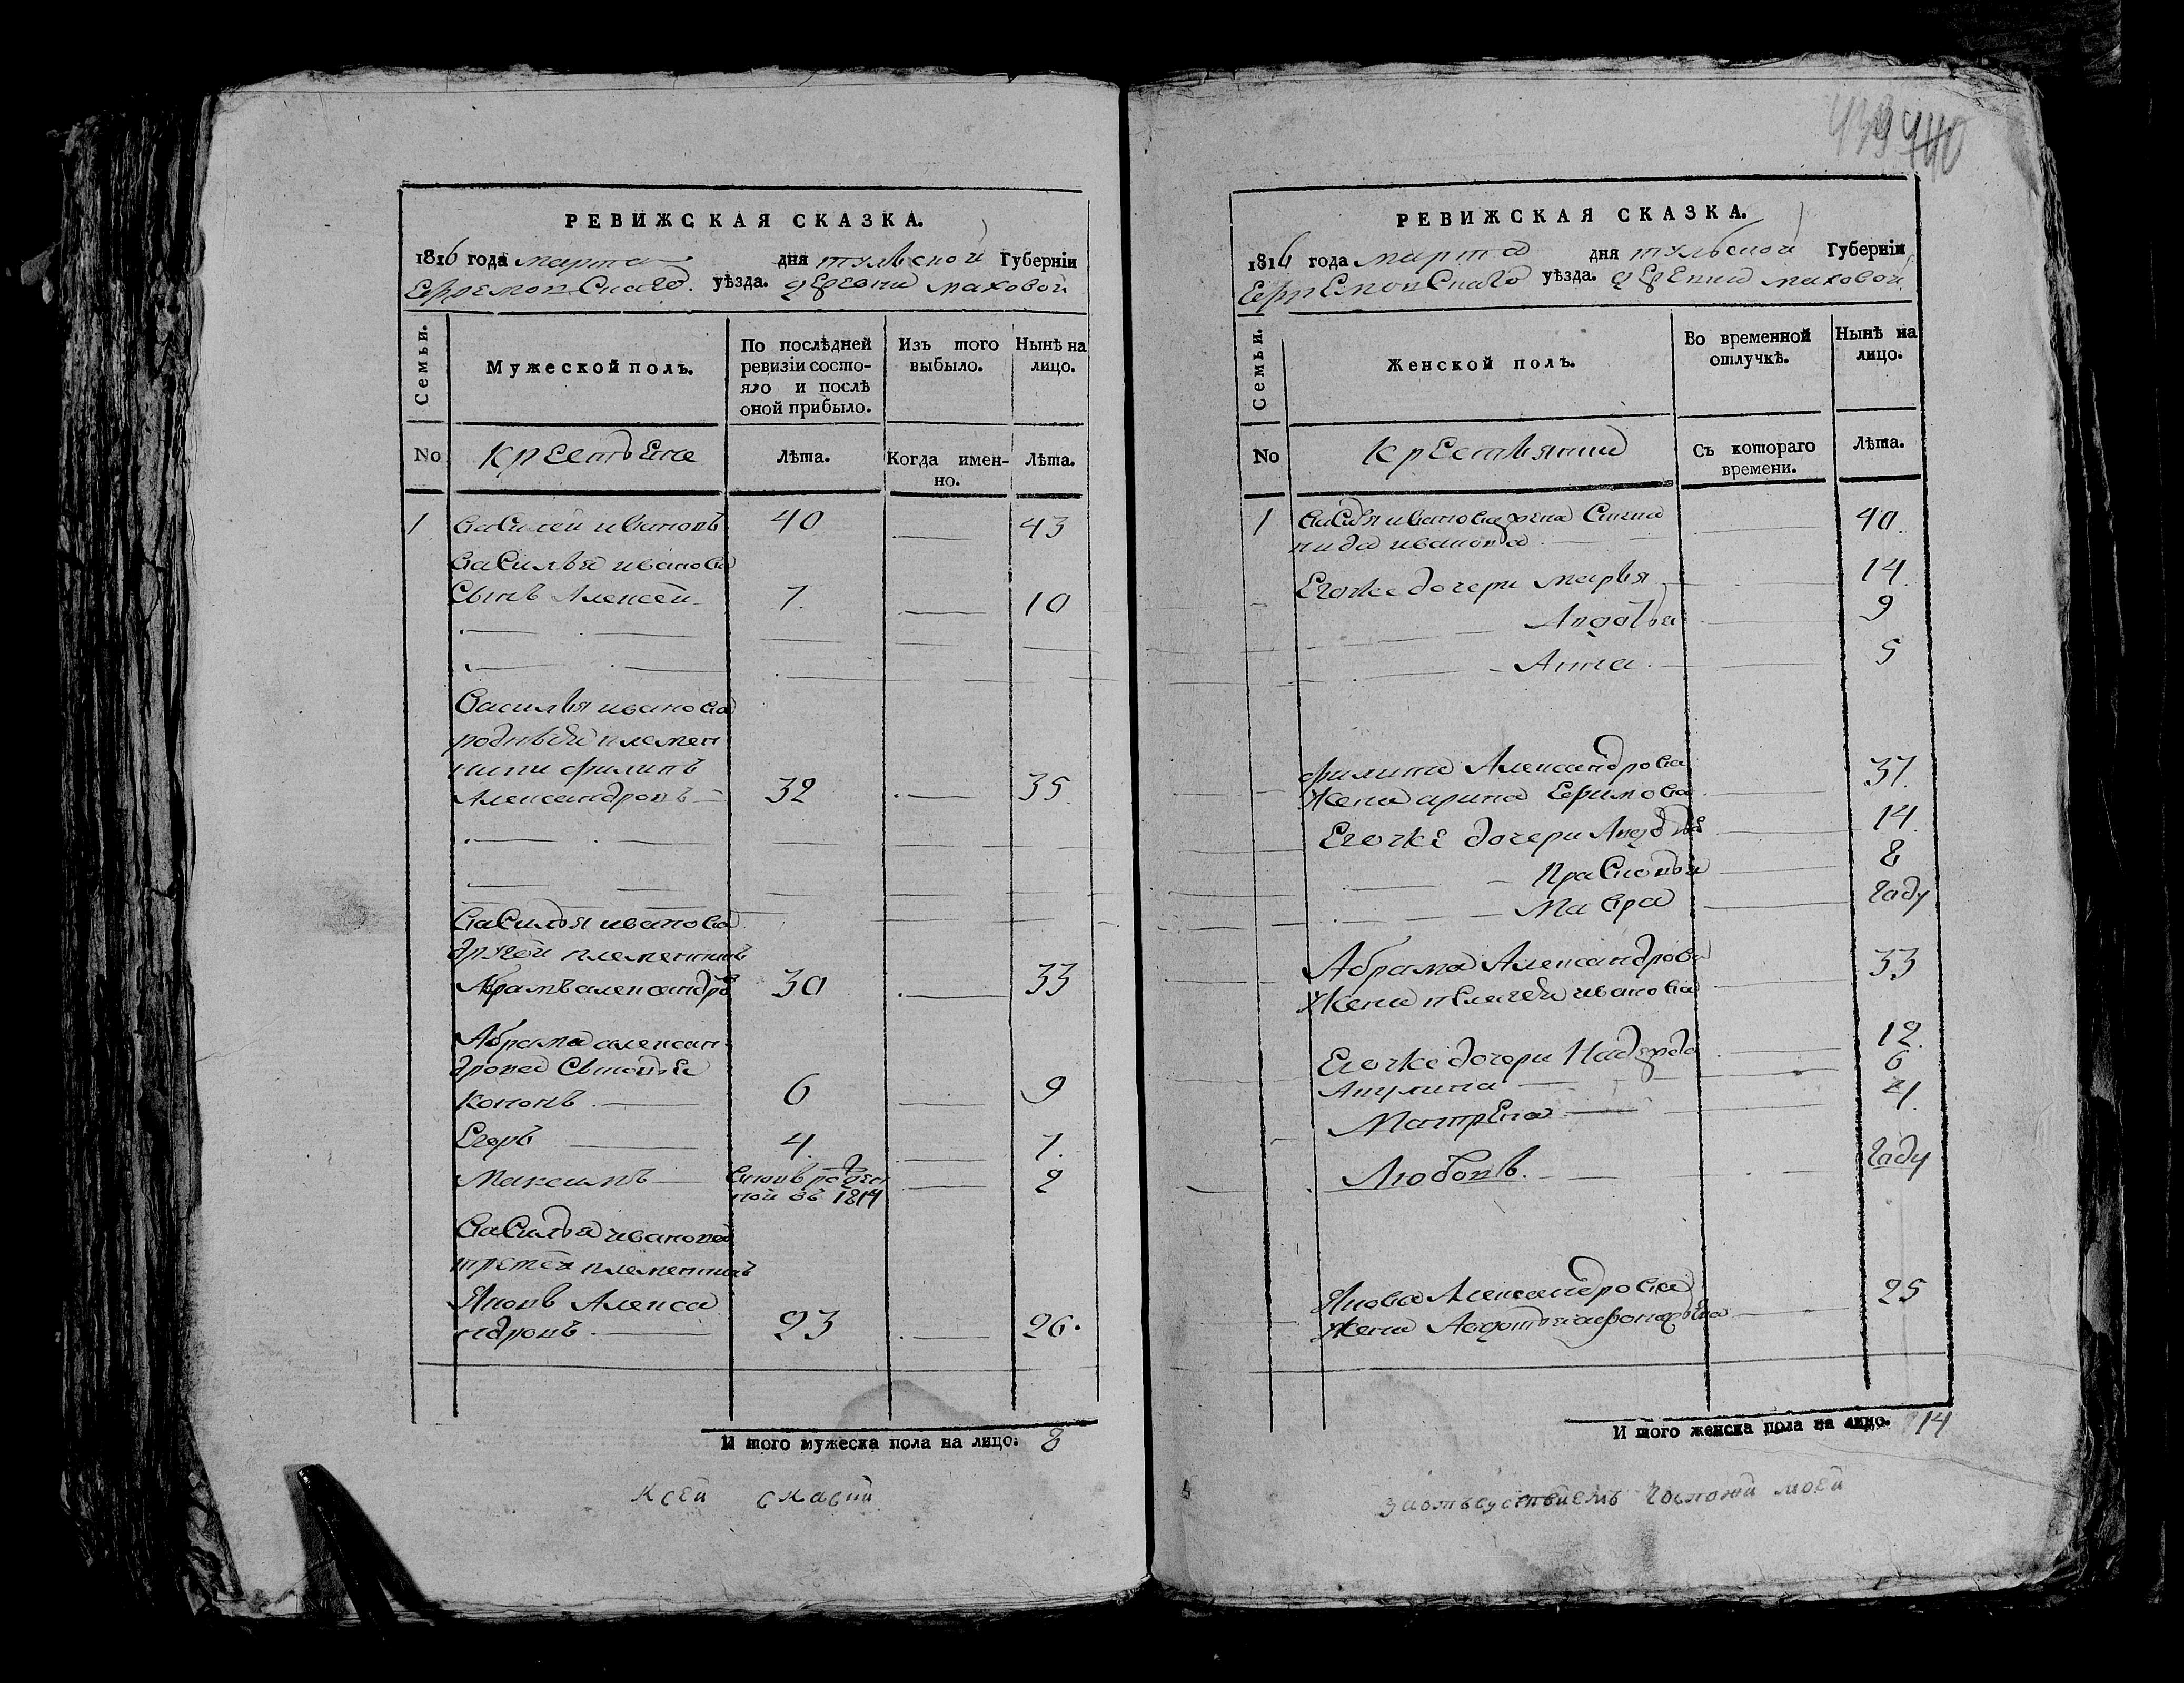 РЕВИЖСКАЯ СКАЗКА.
1816 года марта дня тульской Губернїи
Ефремовскаго уѣзда. деревни маховой
Семьи.
Мужеской полъ.
По послѣдней ревизїи состояло и послѣ оной прибыло.
Изъ того выбыло.
Нынѣ на лицо.
No
крестьяне
Лѣта.
Когда именно.
Лѣта.
1 василей ивановъ 40 43
василья иванова
сынъ Алексей 7. 10
василья иванова
родныя племен
ники филипъ
Александровъ 32 35.
василья иванова
другой племянникъ
Абрамъ александръ 30 33
Абрама алексан
дрова сыновья
кононъ 6 9
Егоръ 4. 7.
Максимъ 2
ной въ 1814
василья иванова
третей племянникъ
Яковъ Алекса
ндровъ 23 26.
И того мужеска пола на лицо. 8
к сей скаски
439 440
РЕВИЖСКАЯ СКАЗКА.
1816 года марта дня тульской Губернїи
Ефремовскаго уѣзда. деревни маховой
Семьи.
Женской полъ.
Во временной отлучкѣ.
Нынѣ на лицо.
No
крестьянки
Съ котораго времени.
Лѣта.
1 василья иванова жена Степа
нида иванова 40.
Егоже дочери марья 14.
Авдотья 9
Анна 5
филипа Александрова
жена арина Ефимова 37.
Егоже дочери Авдотья 14.
Прасковья 8
Мавра году
Абрама Александрова
жена пелагея иванова 33
Егоже дочери Надежда 12.
Акулина 6
Матрена 4.
Любовь. году
Якова Александрова
жена Авдотья 25
И того женска пола на лицо. 14
заотъсуствиемъ госпожи моей